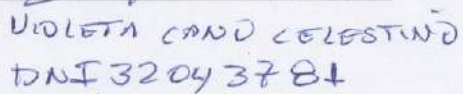 VIOLETA CANO CELESTINO
DNI 32043781